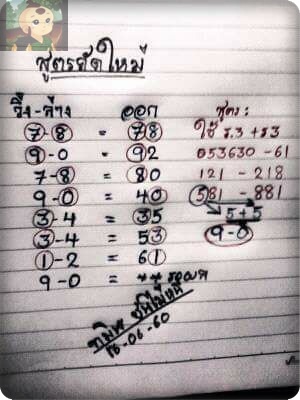 สูตรคัดใหม่
วิ่ง-ล่าง ออก
7-8 = 78
9-0 = 92
7-8 = 80
9-0 = 40
3-4 = 35
3-4 = 53
1-2 = 61
9-0 = ** รอผล
สูตร :
ใช้ ร.3 + ร3
053630 - 61
121 - 218
581 - 881
5+5
9-0
16-06-60